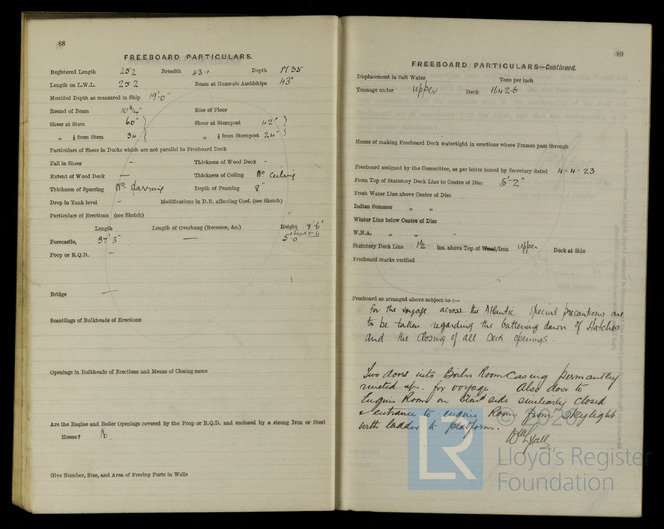 88
FREEBOARD PARTICULARS.
Registered Length 252 Breadth 43.1 Depth
Length on L.W.L. 252 Beam at Gunwale Amidships 43'
Moulded Depth as measured in Ship 19'0"
Round of Beam Rise of Floor
Sheer at Stem 60" Sheer at Sternpost 42"
„ ⅛ from Stem 34 „ ⅛ from Sternpost 24"
Particulars of Sheer in Decks which are not parallel to Freeboard Deck
Fall in Sheer – Thickness of Wood Deck –
Extent of Wood Deck – Thickness of Ceiling No Ceiling
Thickness of Sparring No Depth of Framing 8"
Drop in Tank level – Modifications in D.B. affecting Coef. (see Sketch)
Particulars of Erections (see Sketch)
Length Length of Overhang (Recesses, &c.) Height 7'6"
Forecastle, 37'3" –
Poop or R.Q.D. –
Bridge –
Scantlings of Bulkheads of Erections
Openings in Bulkheads of Erections and Means of Closing same
Are the Engine and Boiler Openings covered by the Poop or R.Q.D. and enclosed by a strong Iron or Steel
House? No
Give Number, Size, and Area of Freeing Ports in Wells
89
FREEBOARD PARTICULARS—Continued.
Displacement in Salt Water Tons per inch
Tonnage under upper Deck 1642.6
Means of making Freeboard Deck watertight in erections where Frames pass through
Freeboard assigned by the Committee, as per letter issued by Secretary dated 4-4-23
From Top of Statutory Deck Line to Centre of Disc 5'2"
Fresh Water Line above Centre of Disc
Indian Summer „ „
Winter Line below Centre of Disc
W.N.A. „ „
Statutory Deck Line 1½ Ins. above Top of Wood/Iron upper Deck at Side
Freeboard marks verified
Freeboard as arranged above subject to :—
For the voyage across the Atlantic special precautions are
to be taken regarding the battening down of Hatches
and the closing of all Deck openings
Two doors into Boiler Room Casing permanently
riveted up for voyage. Also door to
Engine Room on side similarly closed
& entrance to engine Room from Skylight
with ladder to platform.
© 2020
LR
Lloyd's Register
Foundation